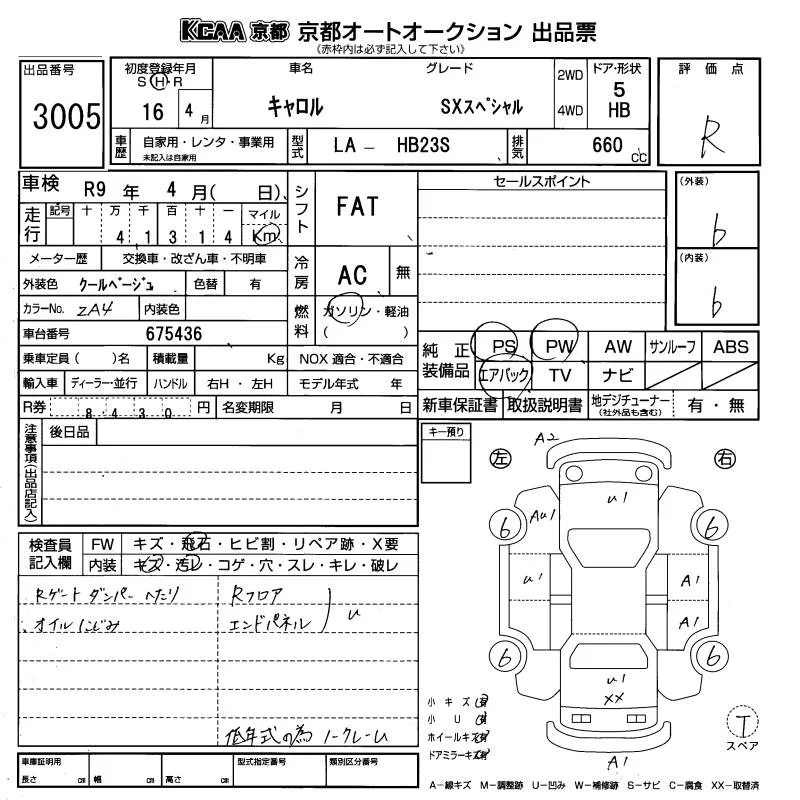 KCAA 京都 京都オートオークション 出品票
《赤枠内は必ず記入して下さい》
出品番号
3005
初度登録年月
S H R
16 4 月
車名
キャロル
グレード
SXスペシャル
2WD
4WD
ドア・形状
5
HB
評価点
R
車歴
自家用・レンタ・事業用
未記入は自家用
型式
LA - HB23S
排気
660 CC
車検 R9 年 4 月( 日)
走行
記号 十 万 千 百 十 一 マイル
4 1 3 1 4 Km
シフト
FAT
メーター歴 交換車・改ざん車・不明車
冷房
AC 無
外装色 クールベージュ 色替 有
カラーNo. ZA4 内装色
燃料
ガソリン・軽油
( )
車台番号 675436
乗車定員( )名 積載量 Kg NOX 適合・不適合
輸入車 ディーラー・並行 ハンドル 右H・左H モデル年式 年
R券 8430 円 名変期限 月 日
セールスポイント
(外装)
6
(内装)
6
純正装備品
PS PW AW サンルーフ ABS
エアバック TV ナビ
新車保証書 取扱説明書 地デジチューナー 有・無
(社外品も含む)
注意事項(出品店記入)
後日品
キー預り
検査員記入欄
FW キズ・飛石・ヒビ割・リペア跡・X要
内装 キズ・汚レ・コゲ・穴・スレ・キレ・破レ
Rゲートダンパーへたり
オイルにじみ
Rフロア
エンドパネル
u
低年式の為ノークレーム
A2
左
右
u1
Au1
6
6
u1
A1
A1
6
6
u1
XX
A1
小キズ有
小U有
ホイールキズ有
ドアミラーキズ有
T
スペア
車庫証明用
長さ cm 幅 cm 高さ cm
型式指定番号
類別区分番号
A-線キズ M-調整跡 U-凹み W-補修跡 S-サビ C-腐食 XX-取替済